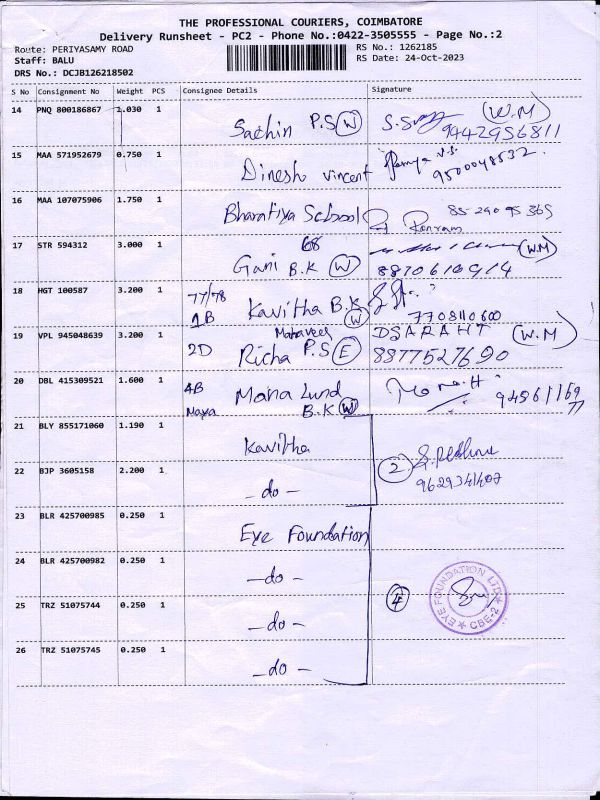 THE PROFESSIONAL COURIERS, COIMBATORE
Delivery Runsheet - PC2 - Phone No.:0422-3505555 - Page No.:2
Route: PERIYASAMY ROAD RS No.: 1262185
Staff: BALU RS Date: 24-Oct-2023
DRS No.: DCJB126218502
S No Consignment No Weight PCS Consignee Details Signature
14 PNQ 800186867 1.030 1 Sachin P.S (W) (W.M)
9442956811
15 MAA 571952679 0.750 1 Dinesh Vincent
9500048532
16 MAA 107075906 1.750 1 Bharatiya School
17 STR 594312 3.000 1 Gani B.K (W) (W.M)
8870610914
18 HGT 100587 3.200 1 77/78 1B Kavitha B.K (W)
7708110600
19 VPL 945048639 3.200 1 2D Mahaveer Richa P.S (E) (W.M)
8877527690
20 DBL 415309521 1.600 1 4B Mana Lund B.K (W)
21 BLY 855171060 1.190 1 Kavitha
22 BJP 3605158 2.200 1 - do - (2)
9629341407
23 BLR 425700985 0.250 1 Eye Foundation
24 BLR 425700982 0.250 1 - do -
25 TRZ 51075744 0.250 1 - do - (4)
EYE FOUNDATION LTD * CBE-2 *
26 TRZ 51075745 0.250 1 - do -